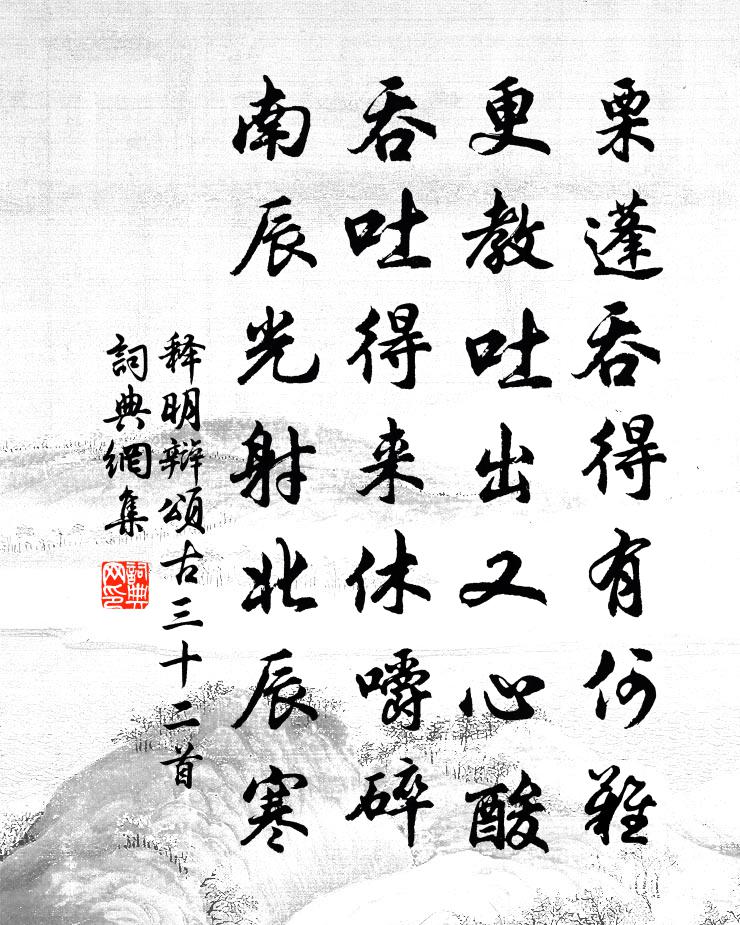 栗蓬吞得有何難
更教吐出又心酸
吞吐得来休嚼碎
南辰光射北辰寒
释明辯頌古三十二首
詞典網集
詞典网印